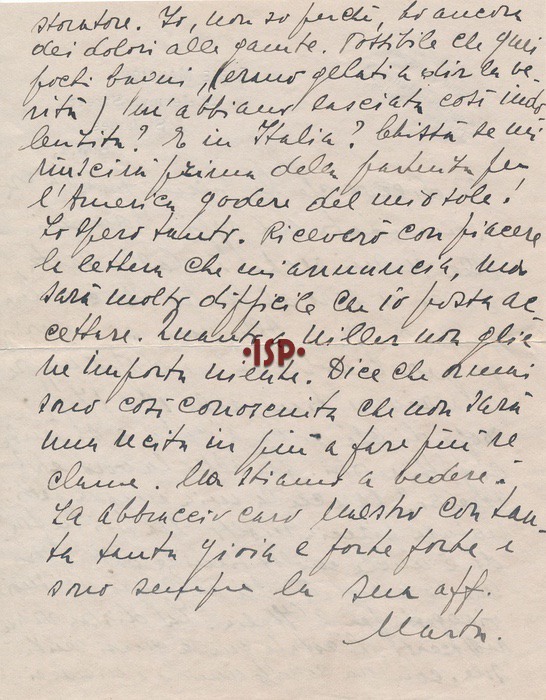 storatore. Io, non so perchè, ho ancora
dei dolori alle gambe. Possibile che quei
pochi bagni, (erano gelati a dir la ve-
rità) m'abbiano lasciata così indo-
lenzita? E in Italia? Chissà se mi
riuscirà prima della partenza per
l'America godere del mio sole!
Lo spero tanto. Riceverò con piacere
la lettera che mi annuncia, ma
sarà molto difficile che io possa ac-
cettare. Quanto a Miller non glie
ne importa niente. Dice che ormai
sono così conosciuta che non sarà
una recita in più a fare più re
clame. Ma stiamo a vedere!
La abbraccio caro Maestro con tan-
ta tanta gioia e forte forte e
sono sempre la sua aff.
Marta.
•ISP•